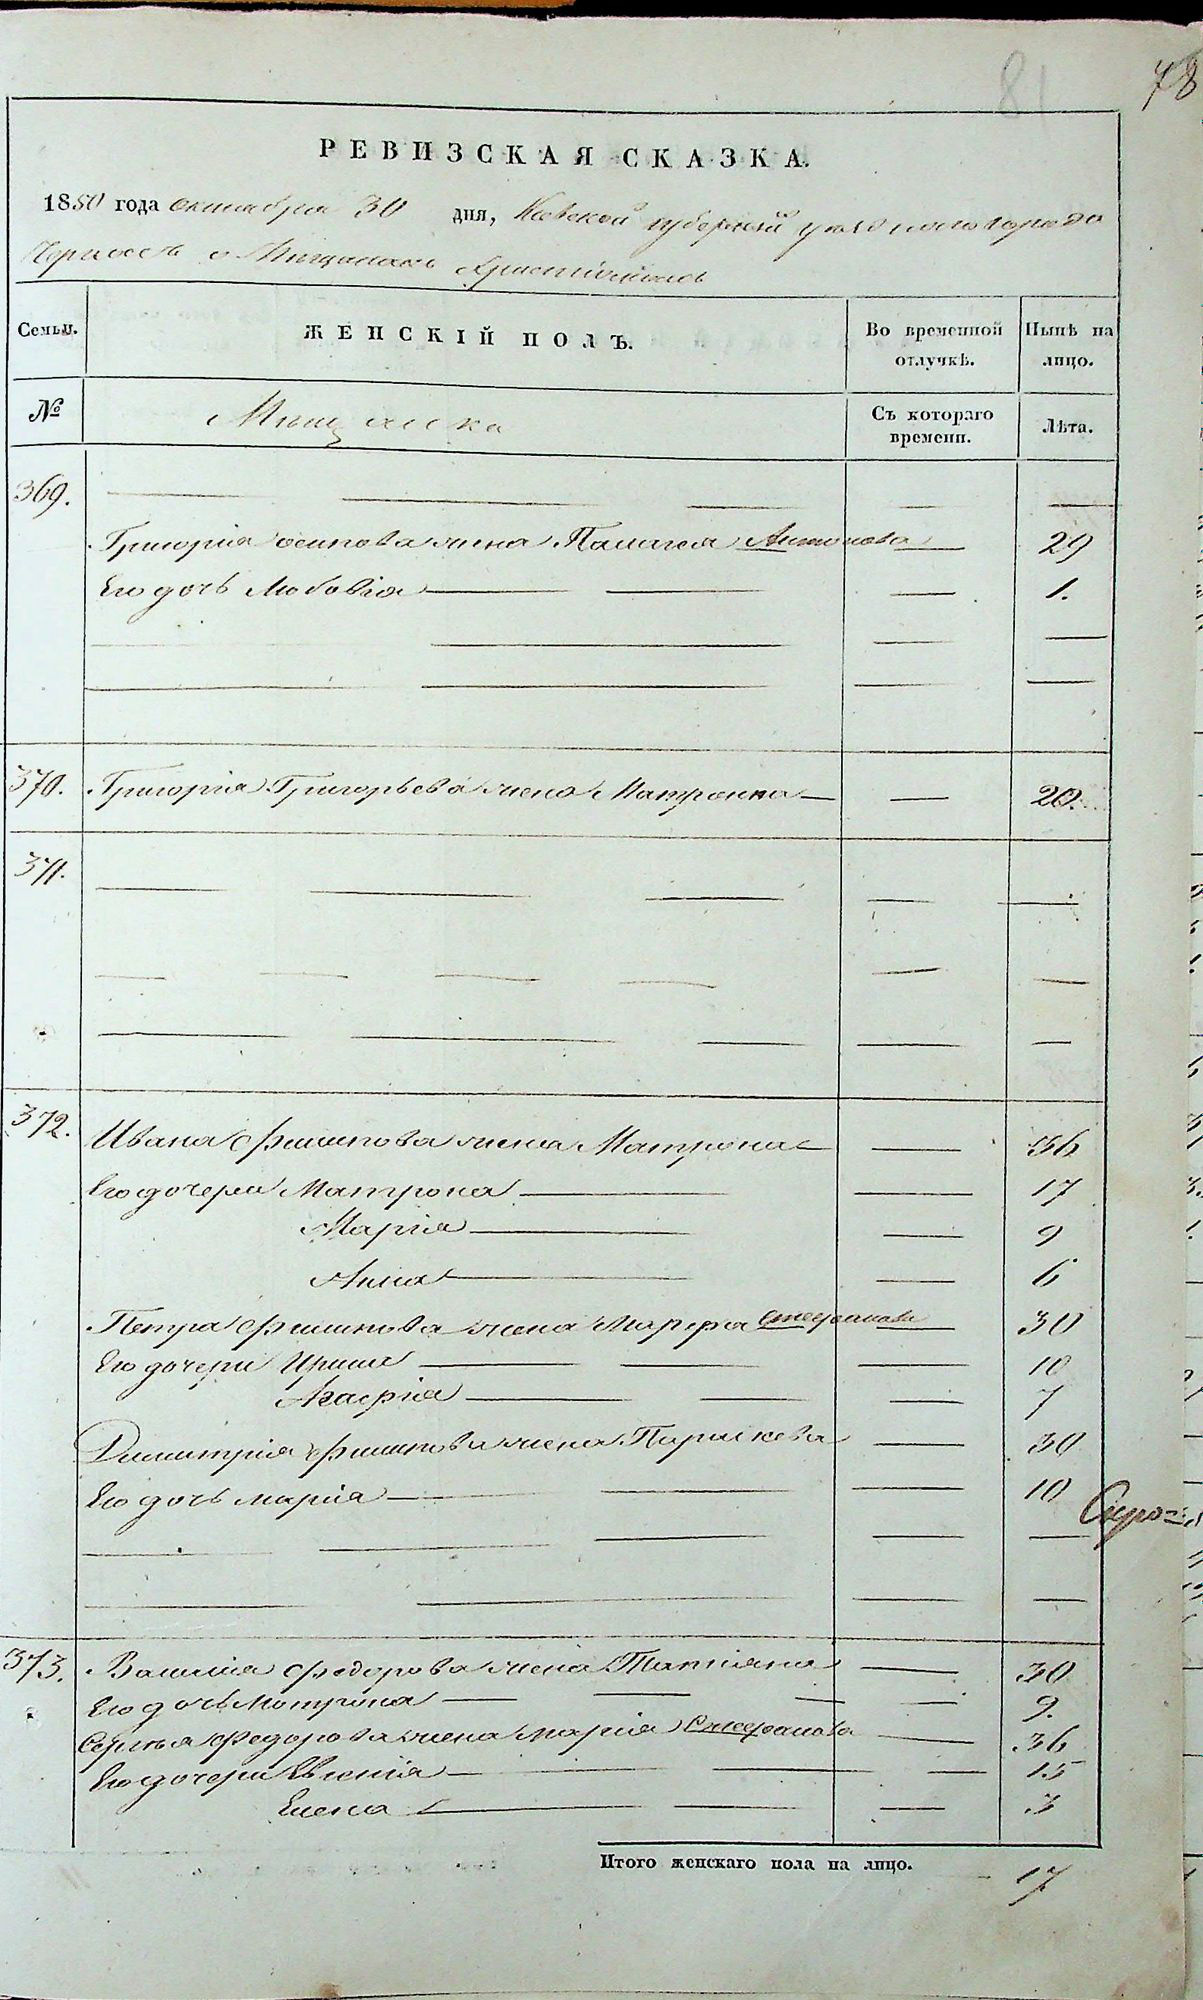 81
78
РЕВИЗСКАЯ СКАЗКА.
1850 года октября 30 дня, Киевской губернии уездного города
Черкасъ о Мещанахъ Христианахъ
Семьи. ЖЕНСКІЙ ПОЛЪ. Во временной отлучкѣ. Нынѣ на лицо.
№ Мещанска Съ котораго времени. Лѣта.
369.
Григорія осипова жена Палагея Антонова — 29
Его дочь Любовія — 1.
370. Григорія Григорьева жена Матрона — 20.
371.
372. Ивана Филипова жена Матрона — 36
Его дочери Матрона — 17
Марія — 9
Анна — 6
Петра Филипова жена Марфа Стефанова — 30
Его дочери Ирина — 10
Агафія — 7
Димитрія Филипова жена Параскева — 30
Его дочь марія — 10
373. Василия Федорова жена Татіяна — 30
Его дочь Мотрона — 9.
Сергѣя Федорова жена марія Стефанова — 36
Его дочери Евгенія — 15
Елена — 3
Итого женскаго пола на лицо. 17